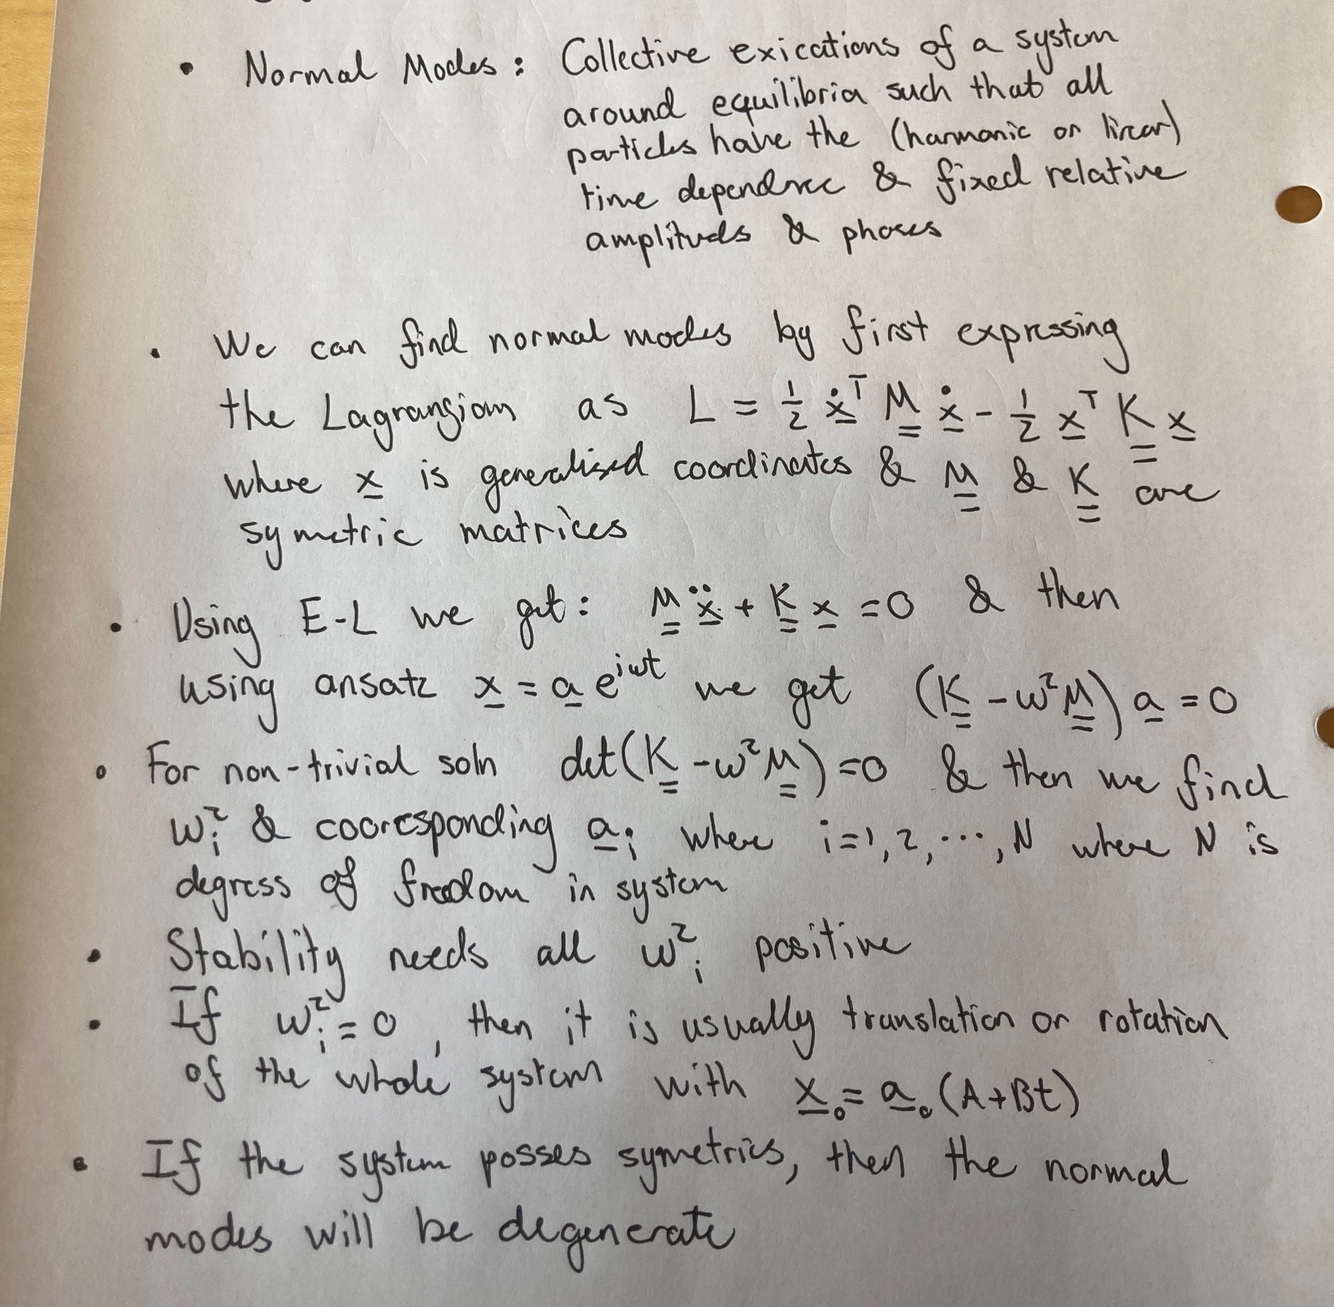 • Normal Modes: Collective exications of a system
around equilibria such that all
particles have the (harmonic or linear)
time dependence & fixed relative
amplitudes & phases
• We can find normal modes by first expressing
the Lagrangian as L = ½ ẋᵀ M ẋ - ½ xᵀ K x
where x is generalised coordinates & M & K are
symetric matrices
• Using E-L we get: M ẍ + K x = 0 & then
using ansatz x = a e^{iωt} we get (K - ω²M) a = 0
• For non-trivial soln det(K - ω²M) = 0 & then we find
ωᵢ² & cooresponding aᵢ where i=1,2,...,N where N is
degress of freedom in system
• Stability needs all ωᵢ² positive
• If ωᵢ² = 0, then it is usually translation or rotation
of the whole system with x₀ = a₀ (A+Bt)
• If the system posses symetries, then the normal
modes will be degenerate